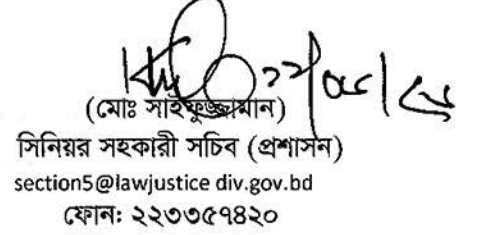 (মোঃ সাইফুজ্জামান)
সিনিয়র সহকারী সচিব (প্রশাসন)
section5@lawjustice div.gov.bd
ফোনঃ ২২৩৩৫৭৪২০